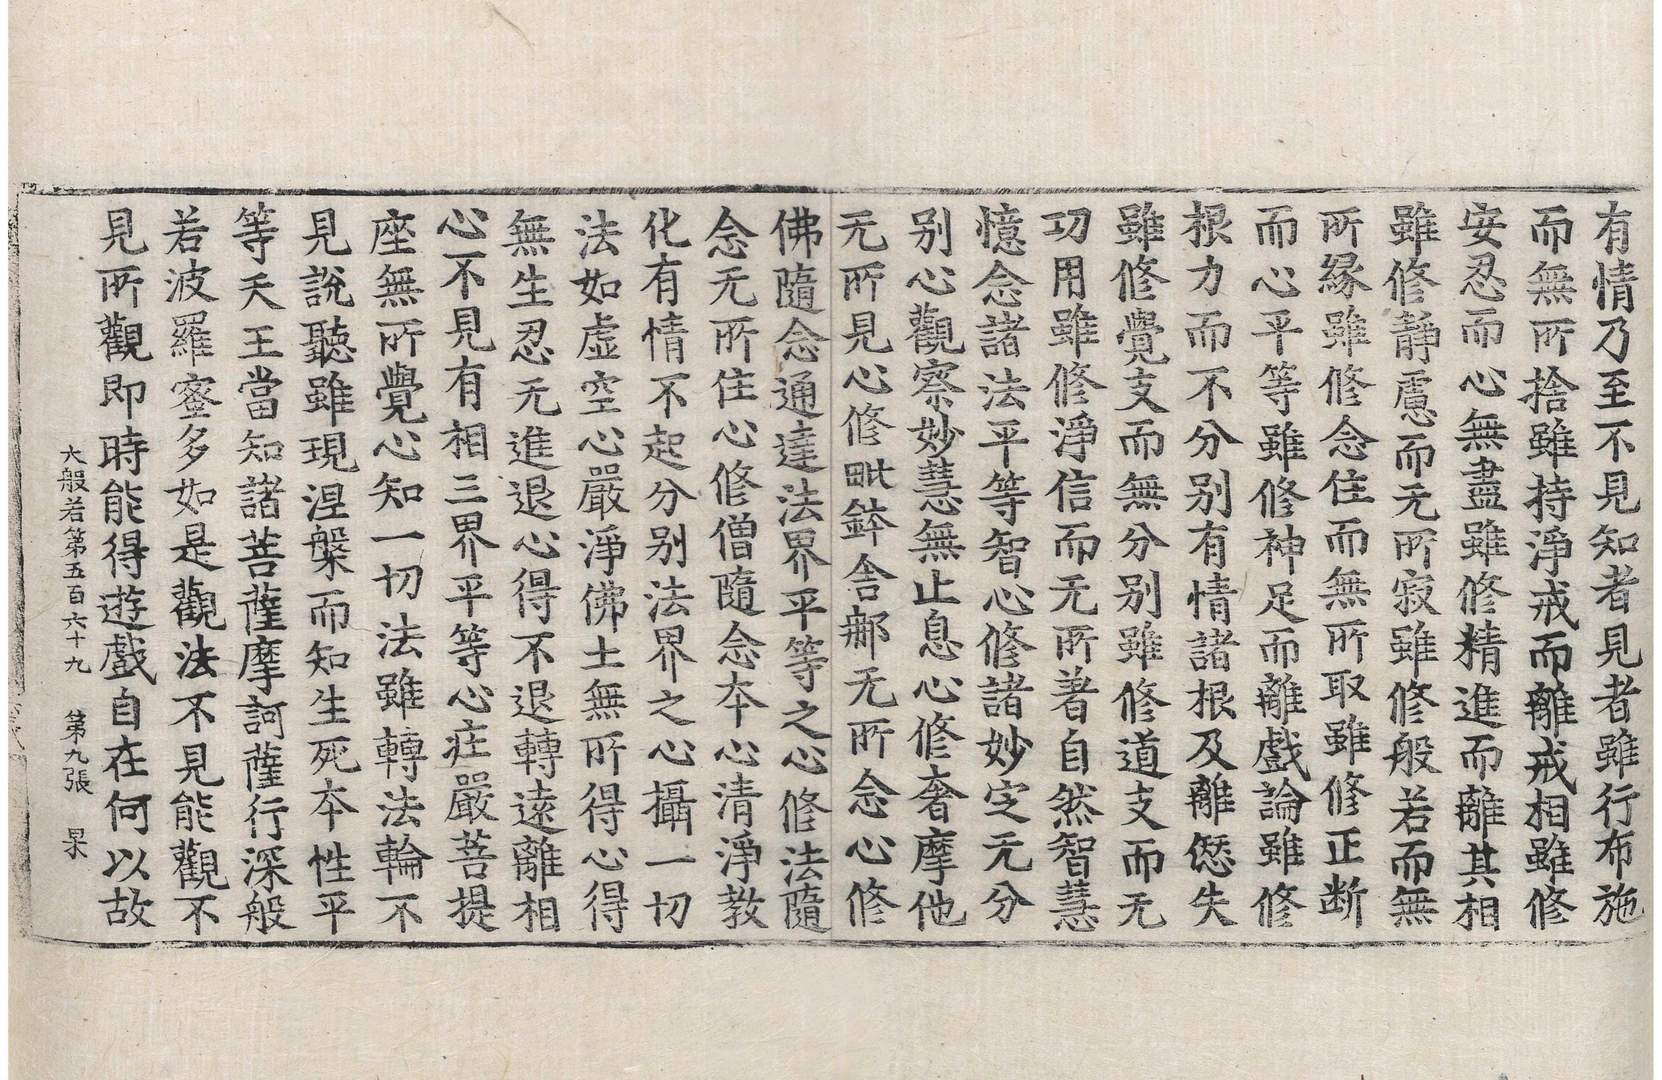 有情乃至不見知者見者雖行布施
而無所捨雖持淨戒而離戒相雖修
安忍而心無盡雖修精進而離其相
雖修靜慮而无所寂雖修般若而無
所緣雖修念住而無所取雖修正断
而心平等雖修神足而離戲論雖修
根力而不分别有情諸根及離愆失
雖修覺支而無分别雖修道支而无
功用雖修淨信而无所著自然智慧
憶念諸法平等智心修諸妙定无分
别心觀察妙慧無止息心修奢摩他
无所見心修毗鉢舍那无所念心修
佛隨念通達法界平等之心修法隨
念无所住心修僧隨念本心清淨教
化有情不起分别法界之心攝一切
法如虛空心嚴淨佛土無所得心得
無生忍无進退心得不退轉遠離相
心不見有相三界平等心莊嚴菩提
座無所覺心知一切法雖轉法輪不
見說聽雖現涅槃而知生死本性平
等天王當知諸菩薩摩訶薩行深般
若波羅蜜多如是觀法不見能觀不
見所觀即時能得遊戲自在何以故
大般若第五百六十九 第九張 杲